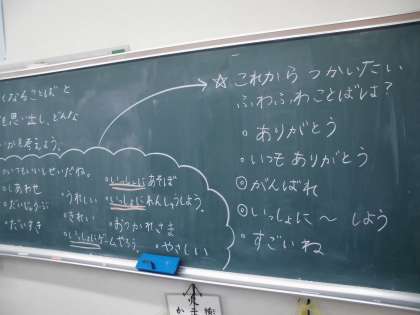 くなることばと
を思い出し、どんな
いかを考えよう。
いてもいいしせいだね。
しあわせ
だいじょうぶ
だいすき
うれしい
きれい
いっしょにあそぼ
いっしょにれんしゅうしよう。
おつかれさま
いっしょにゲームやろう。
やさしい
☆これから つかいたい
ふわふわことばは?
ありがとう
いつもありがとう
◎がんばれ
◎いっしょに〜しよう
すごいね